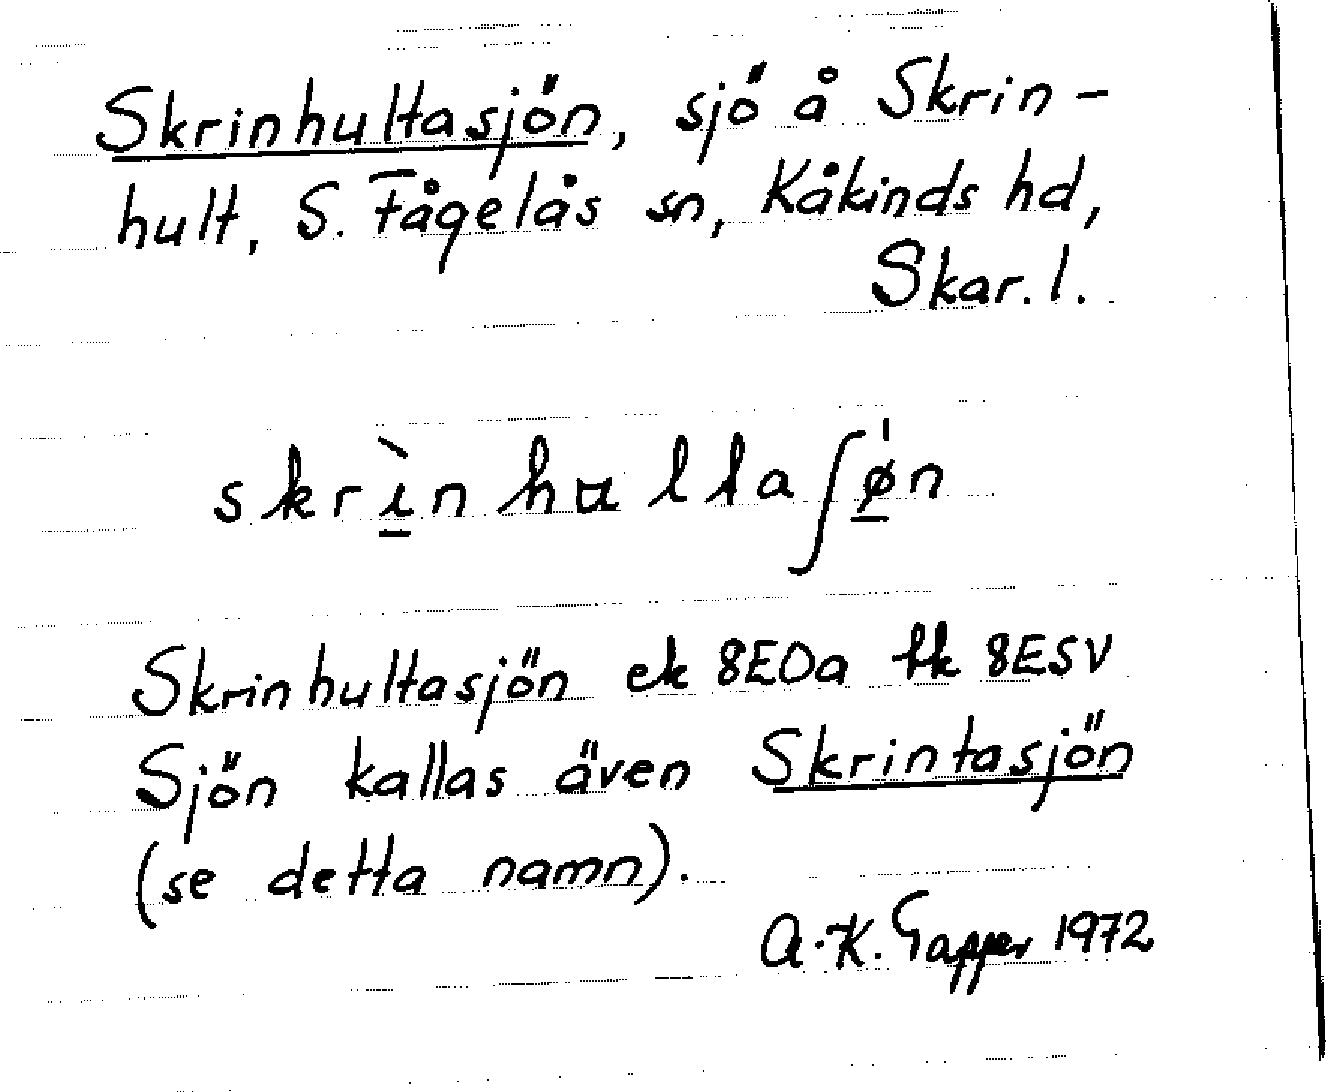 Skrinhultasjön, sjö å Skrin-
hult, S. Fågelås sn, Kåkinds hd,
Skar. l.
Skrinhultasjön ek 8E0a tk 8ESV
Sjön kallas även Skrintasjön
(se detta namn).
A.-K. 1972